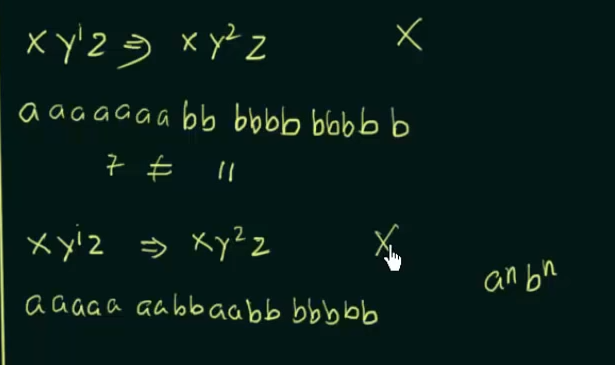 x yⁱ z ⇒ x y² z X
a a a a a a a bb bbbb bbbb b
7 ≠ 11
x yⁱ z ⇒ x y² z X
aⁿ bⁿ
a a a a a aabbaabb bbbbb